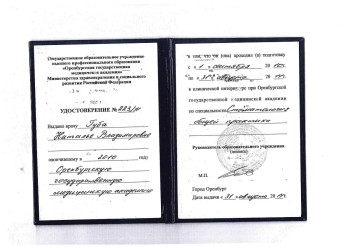 Государственное образовательное учреждение
высшего профессионального образования
«Оренбургская государственная
медицинская академия»
Министерства здравоохранения и социального
развития Российской Федерации
УДОСТОВЕРЕНИЕ № 223/и
Выдано врачу Губа
Наталье Владимировне
окончившему в 2010 году
Оренбургскую
государственную
медицинскую академию
в том, что он (она) проходил (а) подготовку
с « 1 » сентября
по « 31 » августа
в клинической интернатуре при Оренбургской
государственной медицинской академии
по специальности Стоматология
общей практики
Руководитель образовательного учреждения
М.П.
Город Оренбург
Дата выдачи « 31 » августа